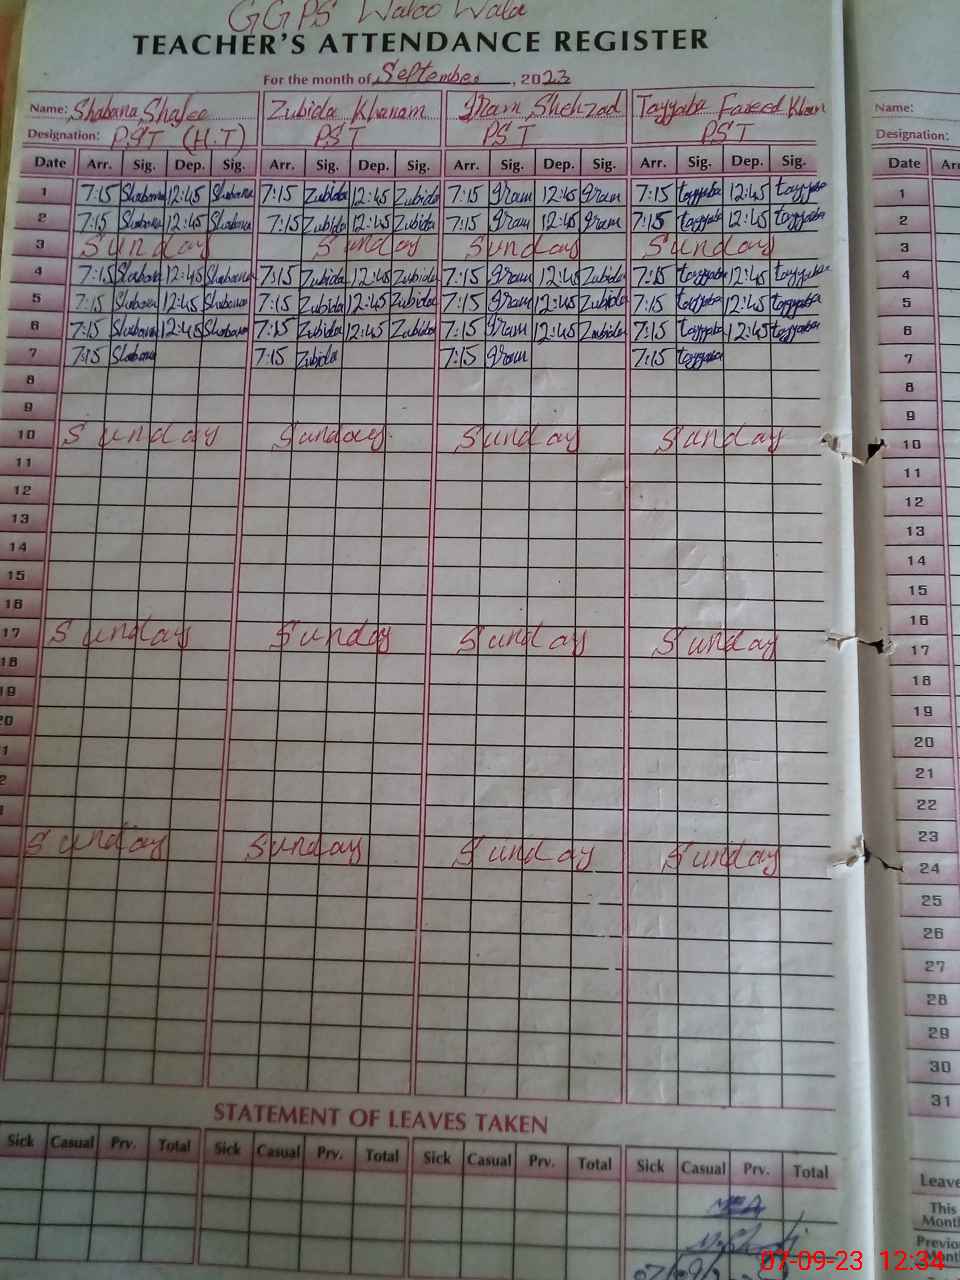 GGPS Waloo Wala
TEACHER'S ATTENDANCE REGISTER
For the month of September, 2023
Name: Shabana Shafee Zubida Khanam Iram Shehzad Tayyaba Fareed Khan Name:
Designation: PST (H.T) PST PST PST Designation:
Date Arr. Sig. Dep. Sig. Arr. Sig. Dep. Sig. Arr. Sig. Dep. Sig. Arr. Sig. Dep. Sig. Date
1 7:15 Shabana 12:45 Shabana 7:15 Zubida 12:45 Zubida 7:15 Iram 12:45 Iram 7:15 tayyaba 12:45 tayyaba 1
2 7:15 Shabana 12:45 Shabana 7:15 Zubida 12:45 Zubida 7:15 Iram 12:45 Iram 7:15 tayyaba 12:45 tayyaba 2
3 Sunday Sunday Sunday Sunday 3
4 7:15 Shabana 12:45 Shabana 7:15 Zubida 12:45 Zubida 7:15 Iram 12:45 Zubida 7:15 tayyaba 12:45 tayyaba 4
5 7:15 Shabana 12:45 Shabana 7:15 Zubida 12:45 Zubida 7:15 Iram 12:45 Zubida 7:15 tayyaba 12:45 tayyaba 5
6 7:15 Shabana 12:45 Shabana 7:15 Zubida 12:45 Zubida 7:15 Iram 12:45 Zubida 7:15 tayyaba 12:45 tayyaba 6
7 7:15 Shabana 7:15 Zubida 7:15 Iram 7:15 tayyaba 7
8 8
9 9
10 Sunday Sunday Sunday Sunday 10
11 11
12 12
13 13
14 14
15 15
16 16
17 Sunday Sunday Sunday Sunday 17
18 18
19 19
20 20
21
22
23
Sunday Sunday Sunday Sunday 24
25
26
27
28
29
30
31
STATEMENT OF LEAVES TAKEN
Sick Casual Prv. Total Sick Casual Prv. Total Sick Casual Prv. Total Sick Casual Prv. Total
Leave
This
Month
Previo
Mont
07-09-23 12:34